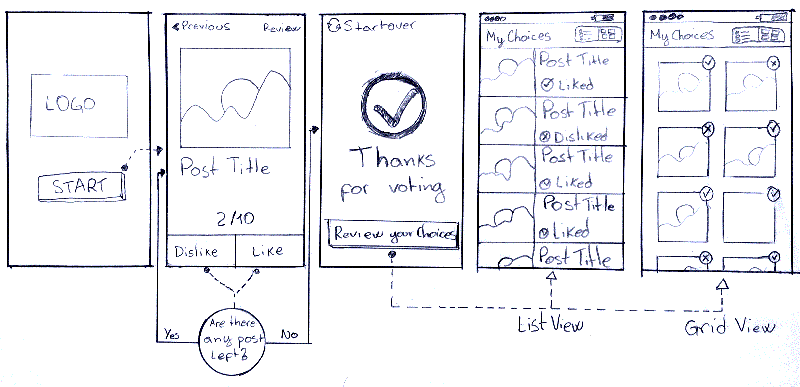 LOGO
START
Previous
Review
Post Title
2/10
Dislike
Like
Are there
any post
Left?
Yes
No
Startover
Thanks
for voting
Review your Choices
My Choices
Post Title
Liked
Post Title
Disliked
Post Title
Liked
Post Title
Liked
Post Title
List View
My Choices
Grid View